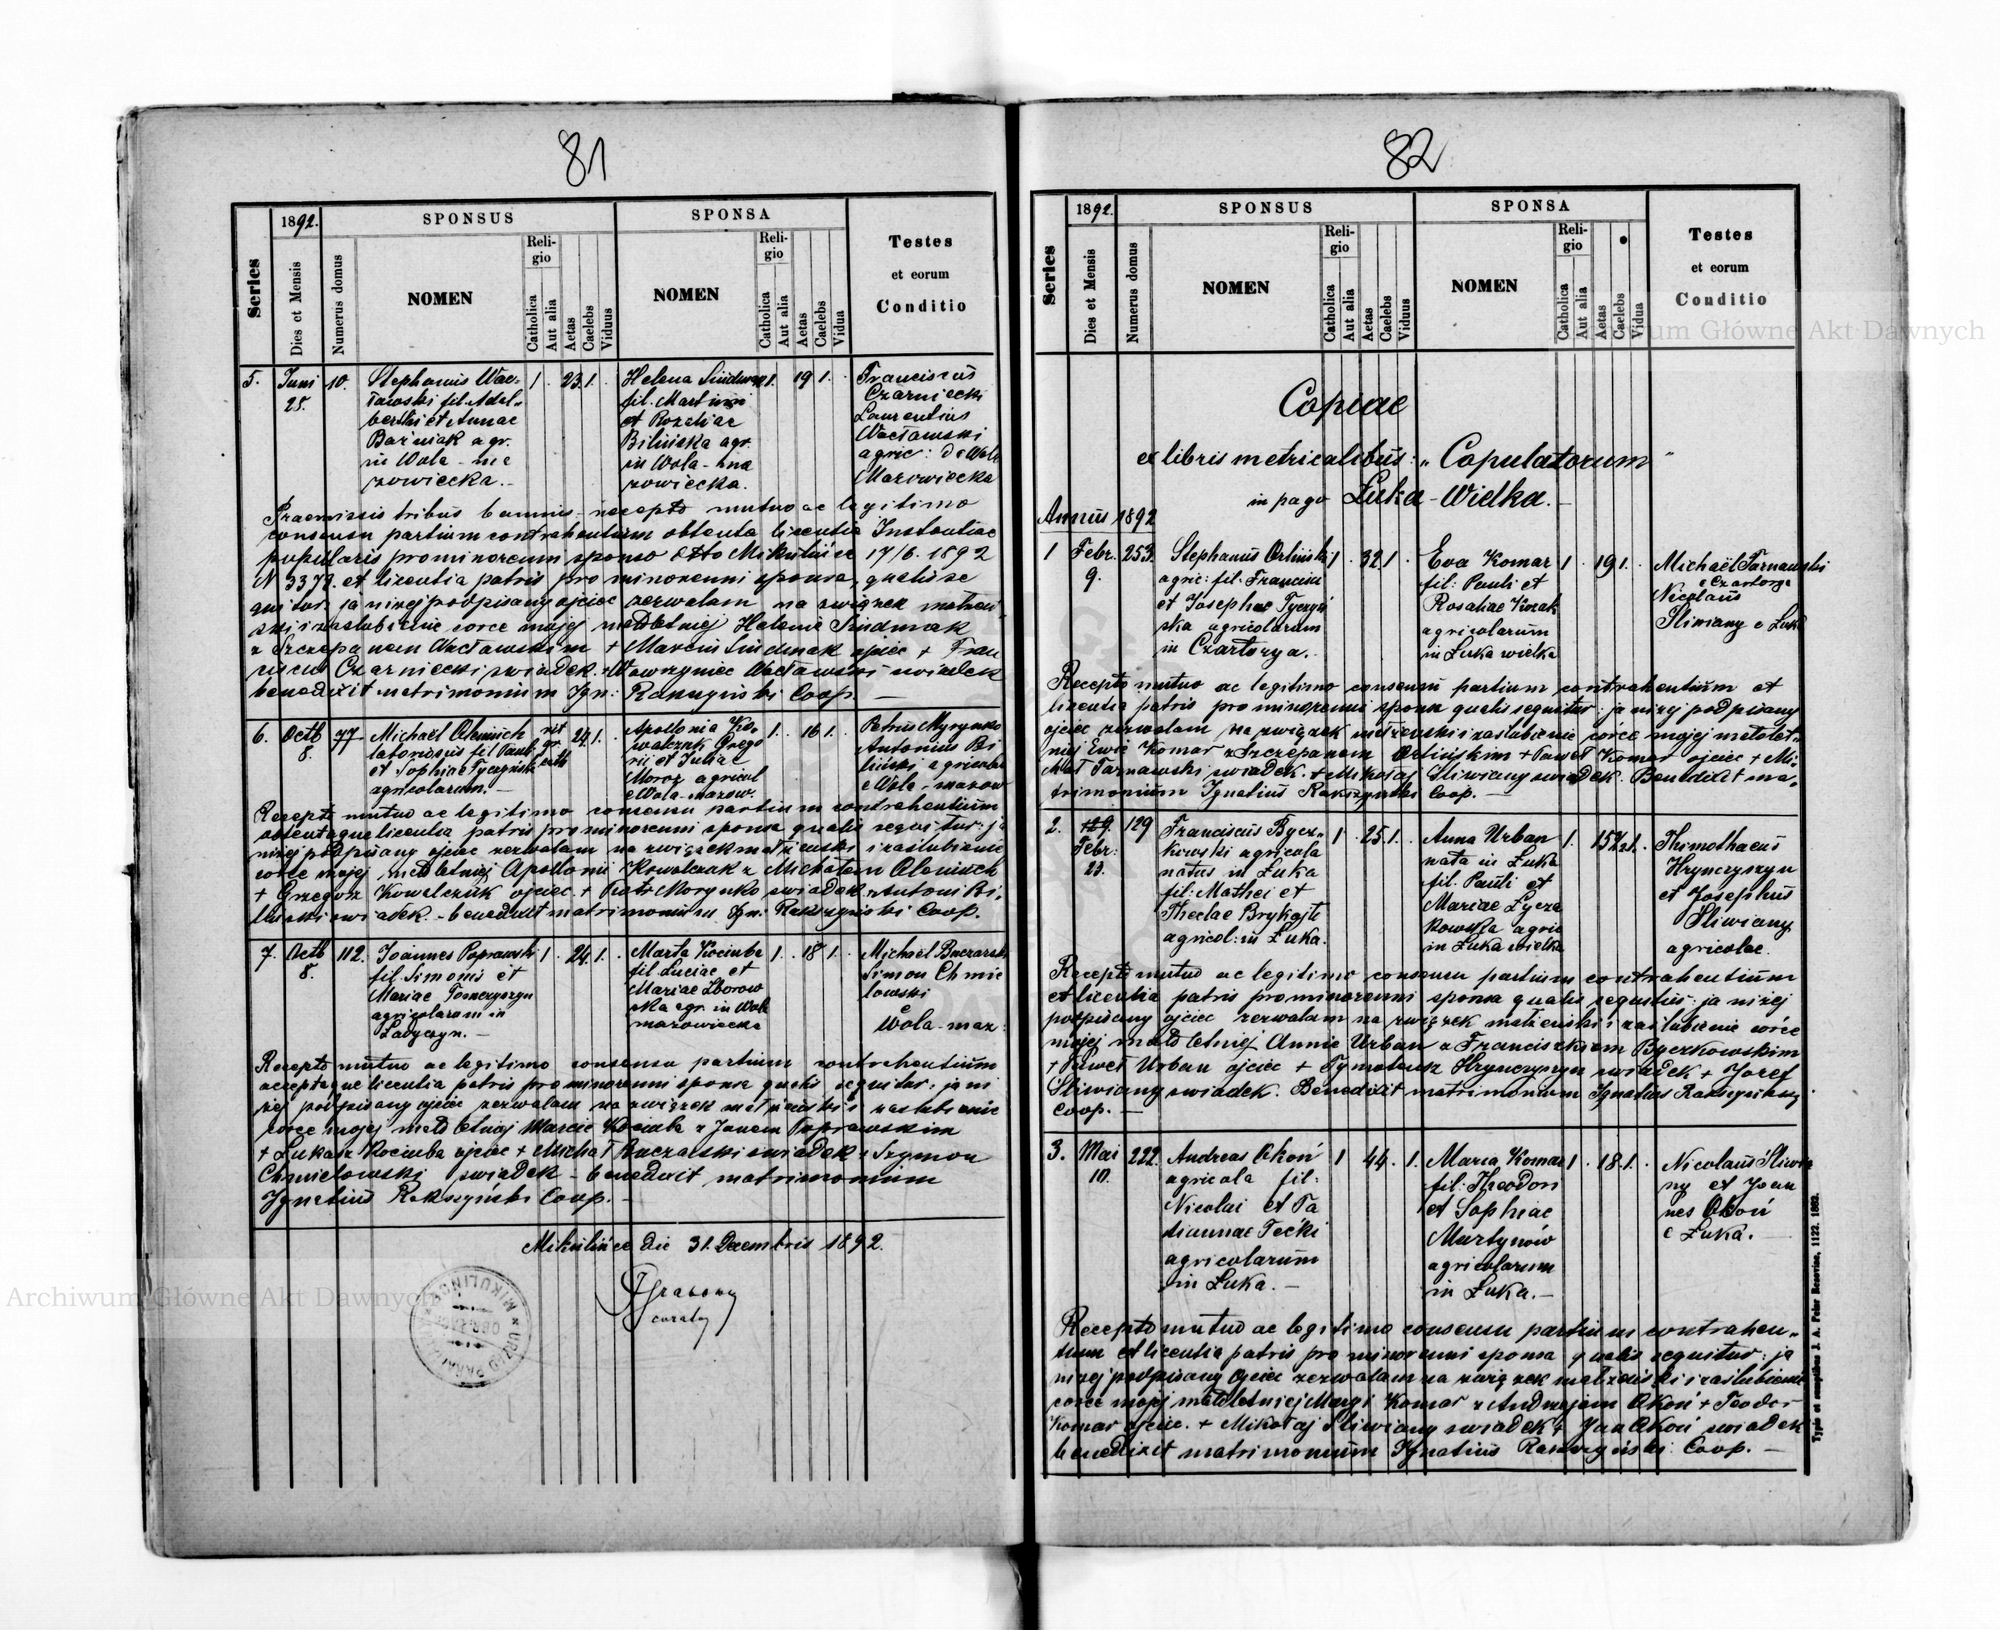 81
1892.
SPONSUS
SPONSA
Series
Dies et Mensis
Numerus domus
NOMEN
Religio
Catholica
Aut alia
Aetas
Caelebs
Viduus
NOMEN
Religio
Catholica
Aut alia
Aetas
Caelebs
Vidua
Testes
et eorum
Conditio
5. Juni 28. 10.
Stephanus Wac-
ławski fil. Adal-
berthi et Annae
Baźniak agr.
in Wola-ma
zowiecka.-
1 . 23 1.
Helena
fil. Martini
et Rozaliae
Bilińska agr.
in Wola-ma
zowiecka.
1. 19 1.
Franciscus
Czarniecki
Laurentius
Wacławski
agric: de Wola
Mazowiecka
Praemissis tribus bannis recepto mutuo ac legitimo
consensu partium contrahentium obtenta licentia Instantiae
popularis pro minorenni sponso ddto Mikulińce 17/6. 1892
N 3379. et licentia patris pro minorenni sponsa, qualis se
quitur: ja niżej podpisany ojciec zezwalam na związek małżeń
ski i zaślubienie córce mojej małoletniej Helenie
z Szczepanem Wacławskim + Marcin ojciec + Fran
Czarniecki świadek. + Wawrzyniec Wacławski świadek
benedixit matrimonium Ign: Rakszyński Coop. —
6. Octb 8. 77
Michael Oleniuch rit
latoniasus fil Pauli gr.
et Sophiae Tyczyńska cath
agricolarum. —
24 1.
Apollonia Ko-
walczuk Grego
rii et Juliae
Moroz agricol
e Wola-mazow.
1. 16 1.
Petrus Myrynko
Antonius Bi
liński agricolae
e Wola-mazow
Recepto mutuo ac legitimo consensu partium contrahentium
obtentaque licentia patris pro minorenni sponsa qualis sequitur: ja
niżej podpisany ojciec zezwalam na związek małżeński i zaślubienie
córce mojej małoletniej Apolonii Kowalczuk z Michałem Oleniuch
+ Grzegorz Kowalczuk ojciec + Piotr Morynko świadek + Antoni Bi-
liński świadek. - benedixit matrimonium Ign: Rakszyński Coop.
7. Octb 8. 112.
Joannes Poprawski
fil Simonis et
Mariae Tomczyszyn
agricolarum in
Ładyczyn. —
1 . 24 1.
Marta Kociuba
fil Luciae et
Mariae Zborow
ska agr. in Wola
mazowiecka
1. 18 1.
Michael Buczarski
Simon Chmie
lowski
e
Wola-maz:
Recepto mutuo ac legitimo consensu partium contrahentium
acceptaque licentia patris pro minorenni sponsa qualis sequitur: ja ni
żej podpisany ojciec zezwalam na związek małżeński i zaślubienie
córce mojej małoletniej Marcie Kociuba z Janem Poprawskim
+ Łukasz Kociuba ojciec + Michał Buczarski świadek + Szymon
Chmielowski świadek - benedixit matrimonium
Ignatius Rakszyński Coop. —
Mikulińce die 31. Decembris 1892.
Grabowy
curatus
82
1892.
SPONSUS
SPONSA
Series
Dies et Mensis
Numerus domus
NOMEN
Religio
Catholica
Aut alia
Aetas
Caelebs
Viduus
NOMEN
Religio
Catholica
Aut alia
Aetas
Caelebs
Vidua
Testes
et eorum
Conditio
Copiae
ex libris metricalibus: „Copulatorum"
in pago Łuka-Wielka. —
Annus 1892
1 Febr. 9. 253.
Stephanus Orliński
agric: fil: Francisci
et Josephae Tyczyń
ska agricolarum
in Czartorya. —
1 . 32 1.
Eva Komar
fil: Pauli et
Rosaliae Kozak
agricolarum
in Łuka wielka
1 . 19 1.
Michaël Tarnawski
e Czartorya
Nicolaus
Sliwiany e Łuka
Recepto mutuo ac legitimo consensu partium contrahentium et
licentia patris pro minorenni sponsa qualis sequitur: ja niżej podpisany
ojciec zezwalam na związek małżeński i zaślubienie córce mojej małolet-
niej Ewie Komar z Szczepanem Orlińskim + Paweł Komar ojciec + Mi-
chał Tarnawski świadek. + Mikołaj Śliwiany świadek. Benedixit ma-
trimonium Ignatius Rakszyński Coop. —
2. Febr: 23. 129
Franciscus Bycz-
kowski agricola
natus in Łuka
fil: Mathei et
Theclae Brykajło
agricol: in Łuka.
1 . 25 1.
Anna Urban
nata in Łuka
fil. Pauli et
Mariae Łycza
kowska agric
in Łuka wielka
1. 15 1/2 1.
Thimothaeus
Hrynczyszyn
et Josephus
Śliwiany
agricolae.
Recepto mutuo ac legitimo consensu partium contrahentium
et licentia patris pro minorenni sponsa qualis sequitur: ja niżej
podpisany ojciec zezwalam na związek małżeński i zaślubienie córce
mojej małoletniej Annie Urban z Franciszkiem Byczkowskim
+ Paweł Urban ojciec + Tymoteusz Hrynczyszyn świadek + Józef
Śliwiany świadek. Benedixit matrimonium Ignatius Rakszyński
Coop. —
3. Mai 10. 222.
Andreas Okoń
agricola fil:
Nicolai et Ta
tiannae Tećki
agricolarum
in Łuka. —
1 44 . 1.
Maria Komar
fil: Theodori
et Sophiae
Martynów
agricolarum
in Łuka. —
1 . 18 1.
Nicolaus Śliwia
ny et Joan
nes Okoń
e Łuka. —
Recepto mutuo ac legitimo consensu partium contrahen-
tium et licentia patris pro minorenni sponsa qualis sequitur: ja
niżej podpisany ojciec zezwalam na związek małżeński i zaślubienie
córce mojej małoletniej Maryi Komar z Andrzejem Okoń + Teodor
Komar ojciec. + Mikołaj Śliwiany świadek + Jan Okoń świadek
benedixit matrimonium Ignatius Rakszyński Coop. —
Typis et sumptibus J. A. Pelar Resoviae, 1122. 1882.
Archiwum Główne Akt Dawnych
Archiwum Główne Akt Dawnych